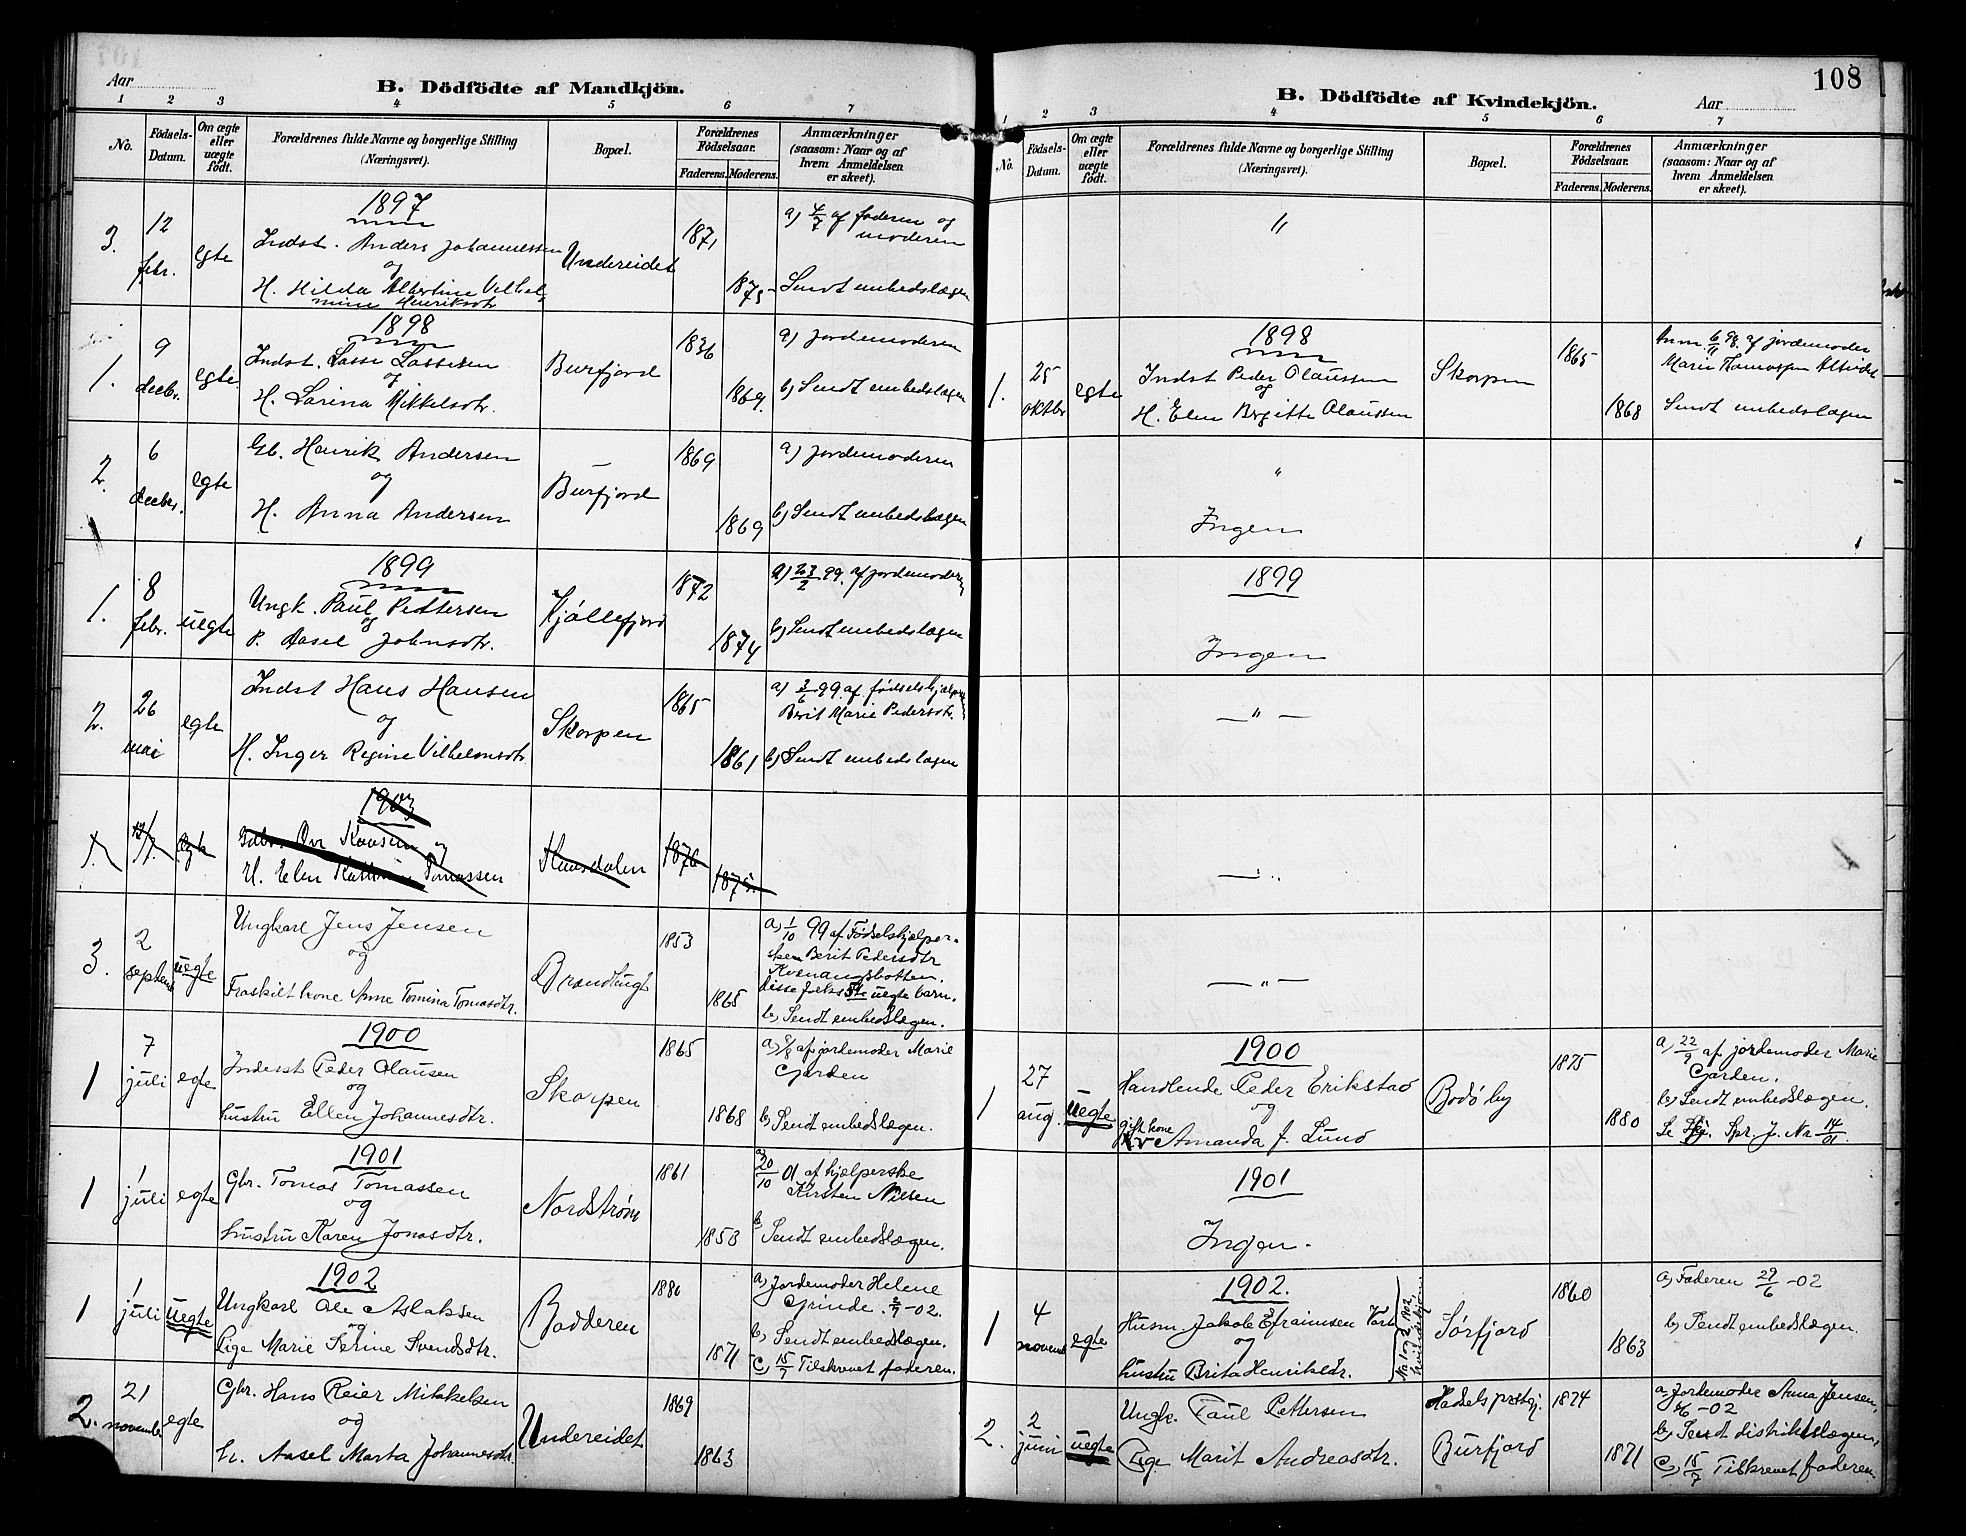 Aar
B. Dödfödte af Mandkjön.
1 2 3 4 5 6 7
No.
Födsels-Datum.
Om ægte eller uægte födt.
Forældrenes fulde Navne og borgerlige Stilling (Næringsvei).
Bopæl.
Forældrenes Födselsaar.
Faderens. Moderens.
Anmærkninger (saasom: Naar og af hvem Anmeldelsen er skeet).
1897
3. 12 febr. egte
Indst. Anders Johannessen
og
H. Hilda Albertine Vilhel
mine Henriksdtr
Undereidet
1871
1875
a) 4/7 af faderen og
moderen
Sendt embedslægen
1898
1. 9 decbr. egte
Indst. Lasse Lassesen
og
H. Larina Mikkelsdtr.
Burfjord
1836
1869.
a) jordemoderen
b) Sendt embedslægen
2. 6 decbr. egte
Gb. Henrik Andersen
og
H. Anna Andersen
Burfjord
1869
1869
a) jordemoderen
b) Sendt embedslægen
1899
1. 8 febr. uegte
Ungk. Paul Pettersen
og
P. Aasel Johnsdtr.
Kjøllefjord
1872
1874
a) 23/2 99. af jordemoderen
b) Sendt embedslægen
2. 26 mai egte
Indst Hans Hansen
og
H. Inger Regine Vilhelmsdtr.
Skorpen
1865
1861
a) 3/6 99. af fødselshjælpersk
Berit Marie Pedersdtr.
b) Sendt embedslægen
1903
og
H. Elen Tomassen
1876
1875.
3. 2 septemb uegte
Ungkarl Jens Jensen
og
Fraskilt kone Anne Tomina Tomasdtr.
1853
1865
a) 1/10 99 af Fødselshjælper-
sken Berit Pedersdtr
Kvænangsbotten.
disse folks uegte barn.
b) Sendt embedslægen.
1900
1 7 juli egte
Inderst Peder Olausen
og
hustru Ellen Johannesdtr.
Skorpen
1865
1868
a) af jordemoder Marie
Gjerden
b) Sendt embedslægen.
1901
1 1 juli egte
Gbr. Tomas Tomassen
og
hustru Karen Jonasdtr.
Nordstrøm
1861
1853
a) 20/10 01 af hjælperske
Kirsten Nilsen
b) Sendt embedslægen.
1902
1 1 juli uegte
Ungkarl Ole Aslaksen
og
Pige Marie Serine Svendsdtr.
Badderen
1880
1871
a) Jordemoder Helene
Grinde. 2/7-02.
b) Sendt embedslægen.
c) 15/7 Tilskrevet faderen.
2. 21 november egte
Gbr. Hans Reier Mikkelsen
og
H. Aasel Marta Johannesdtr
Undereidet
1869
1863
108
B. Dödfödte af Kvindekjön.
Aar
1 2 3 4 5 6 7
No.
Födsels-Datum.
Om ægte eller uægte födt.
Forældrenes fulde Navne og borgerlige Stilling (Næringsvei).
Bopæl.
Forældrenes Födselsaar.
Faderens. Moderens.
Anmærkninger (saasom: Naar og af hvem Anmeldelsen er skeet).
"
1898
1. 25 oktbr egte
Indst Peder Olaussen
og
H. Elen Bergitte Olaussen
Skorpen
1865
1868
Anm. 6/11 98. af jordemoder
Marie Thomassen Alteidet
Sendt embedslægen
"
Ingen
1899
Ingen
— " —
— " —
— " —
1900
1 27 aug. uegte
Handlende Peder Erikstad
og
gift kone
Amanda J. Lund
Bodø by
1875
1880
a) 22/9 af jordemoder Marie
Gjerden.
b) Sendt embedslægen.
Se Spr. J. Nr 14/01
1901
Ingen.
1902.
1 4 novemb egte
Husm. Jakob Efraimsen
og
hustru Brita Henriksdtr.
No 1 og 2, 1902,
Sørfjord
1860
1863
a) Faderen 29/6 -02
b) Sendt embedslægen.
2. 2 juni uegte
Ungk. Paul Pettersen
Pige Marit Andreasdtr.
Hadsels prestgj.
Burfjord
1874
1871
a) Jordemoder Anna Jensen,
-02
b) Sendt distriktslægen,
c) 15/7 Tilskrevet faderen.